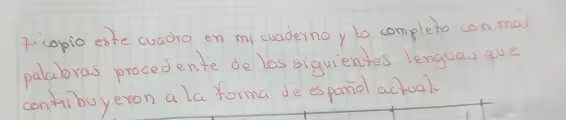 7- copio este cuadro en mi cuaderno y lo completo con mas
palabras procedente de las siguientes lenguas que
contribuyeron a la forma de español actual.